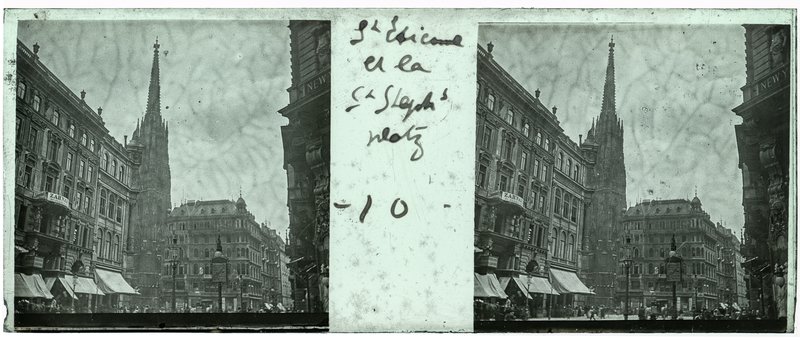 St Etienne
et la
St Stephs
platz
- 10 -
NEW
NEW